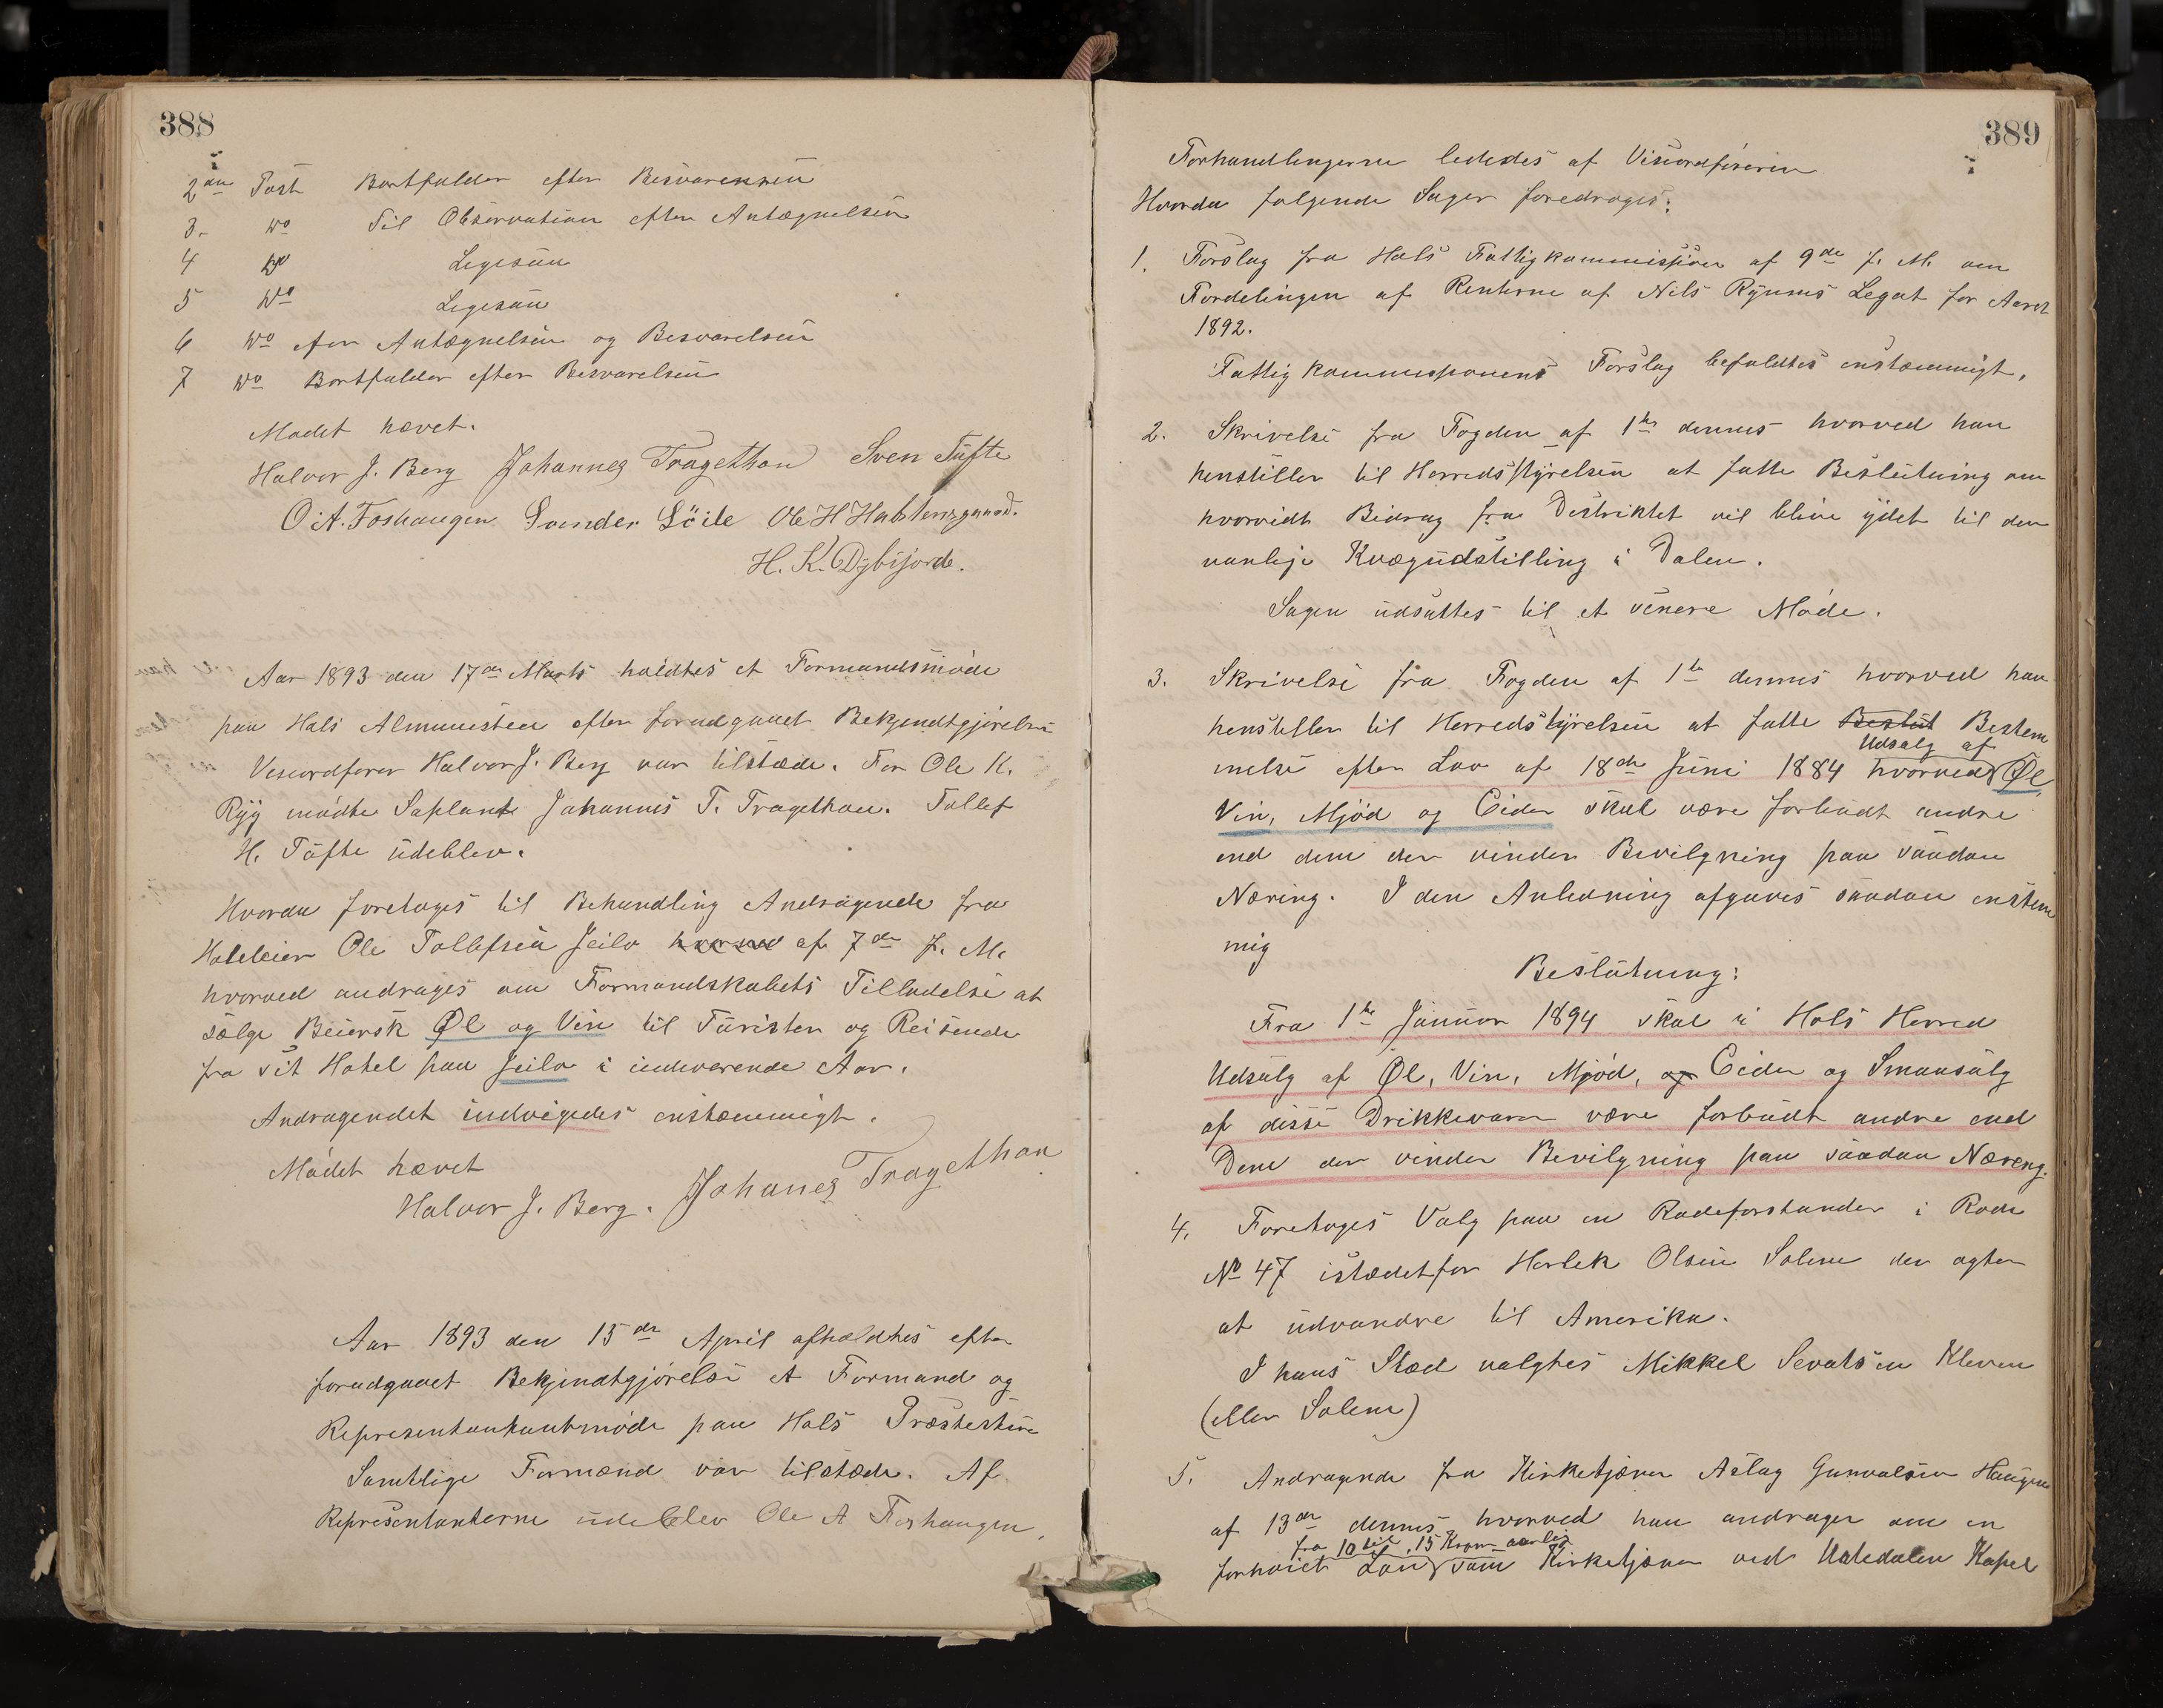 388
2den Post Bortfalder efter Besvarelsen
3. do Til Observation efter Antegnelsen
4 do Ligesaa
5 do Ligesaa
6 do efter Antegnelsen og Besvarelsen
7 do Bortfalder efter Besvarelsen
Mødet hævet.
Halvor J. Berg Johannes Tragethon Sven Tufte
O. A. Foshaugen Svender Löile Ole H Halstensgaard.
H. K. Dybsjorde.
Aar 1893 den 17de Marts holdtes et Formandsmøde
paa Hols Almuestue efter forudgaaet Bekjendtgjørelse
Viseordfører Halvor J. Berg var tilstæde. For Ole K.
Ryg mødte Saplant Johannes T. Tragethon. Tollef
H. Tufte udeblev.
Hvorda foretoges til Behandling Andragende fra
Hoteleier Ole Tollefsen Jeilo hvorved af 7de f. M.
hvorved andrages om Formandskabets Tilladelse at
sælge Beiersk Øl og Vin til Turister og Reisende
fra sit Hotel paa Jeilo i indeværende Aar.
Andragendet indvigedes enstæmmigt.
Mødet hævet
Halvor J. Berg. Johannes Tragethon
Aar 1893 den 15de April afholdtes efter
forudgaaet Bekjendtgjørelse et Formand og
Representantantmøde paa Hols Præstestue
Samtlige Formænd var tilstæde. Af
Representanterne udeblev Ole A Foshaugen.
389
Forhandlingerne lededes af Viseordføreren
Hvorda følgende Sager foredroges:
1. Forslag fra Hols Fattigkommission af 9de f. M. om
Fordelingen af Renterne af Nils Ryums Legat for Aaret
1892.
Fattigkommissionens Forslag befaldtes enstæmmigt.
2. Skrivelse fra Fogden af 1ste dennes hvorved han
henstiller til Herredsstyrelsen at fatte Beslutning om
hvorvidt Bidrag fra Distriktet vil blive ydet til den
vanlige Kvægudstilling i Dalen.
Sagen udsattes til et senere Møde.
3. Skrivelse fra Fogden af 1ste dennes hvorved han
henstiller til Herredstyrelsen at fatte Beslut Bestem
Udsalg af
melse efter Lov af 18de Juni 1884 hvorved Øl,
Vin, Mjød og Cider skal være forbudt andre
end dem der vinder Bevilgning paa saadan
Næring. I den Anledning afgaves saadan enstem
mig
Beslutning:
Fra 1ste Januar 1894 skal i Hols Herred
Udsalg af Øl, Vin, Mjød, og Cider og Smaasalg
af disse Drikkevarer være forbudt andre end
Dem der vinder Bevilgning paa saadan Næreng.
4. Foretoges Valg paa en Rodeforstander i Rode
No 47 istædetfor Herlek Olsen Solem der agter
at udvandre til Amerika.
I hans Stæd valgtes Mikkel Sevatsen Kleven
(eller Solem)
5. Andragende fra Kirketjener Aslag Gunvalsen Haugen
af 13de dennes hvorved han andrager om en
fra 10 til 15 Kroner aarlig
forhøiet Løn som Kirketjener ved Ustedalen Kapel